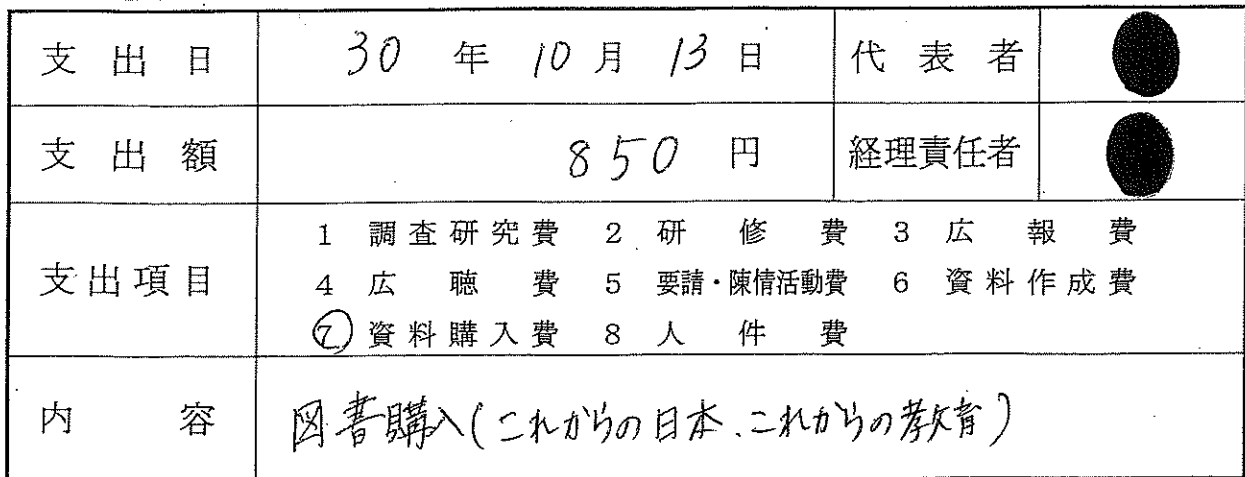 支出日 30年10月13日 代表者
支出額 850円 経理責任者
支出項目
1 調査研究費 2 研修費 3 広報費
4 広聴費 5 要請・陳情活動費 6 資料作成費
⑦ 資料購入費 8 人件費
内容 図書購入(これからの日本、これからの教育)